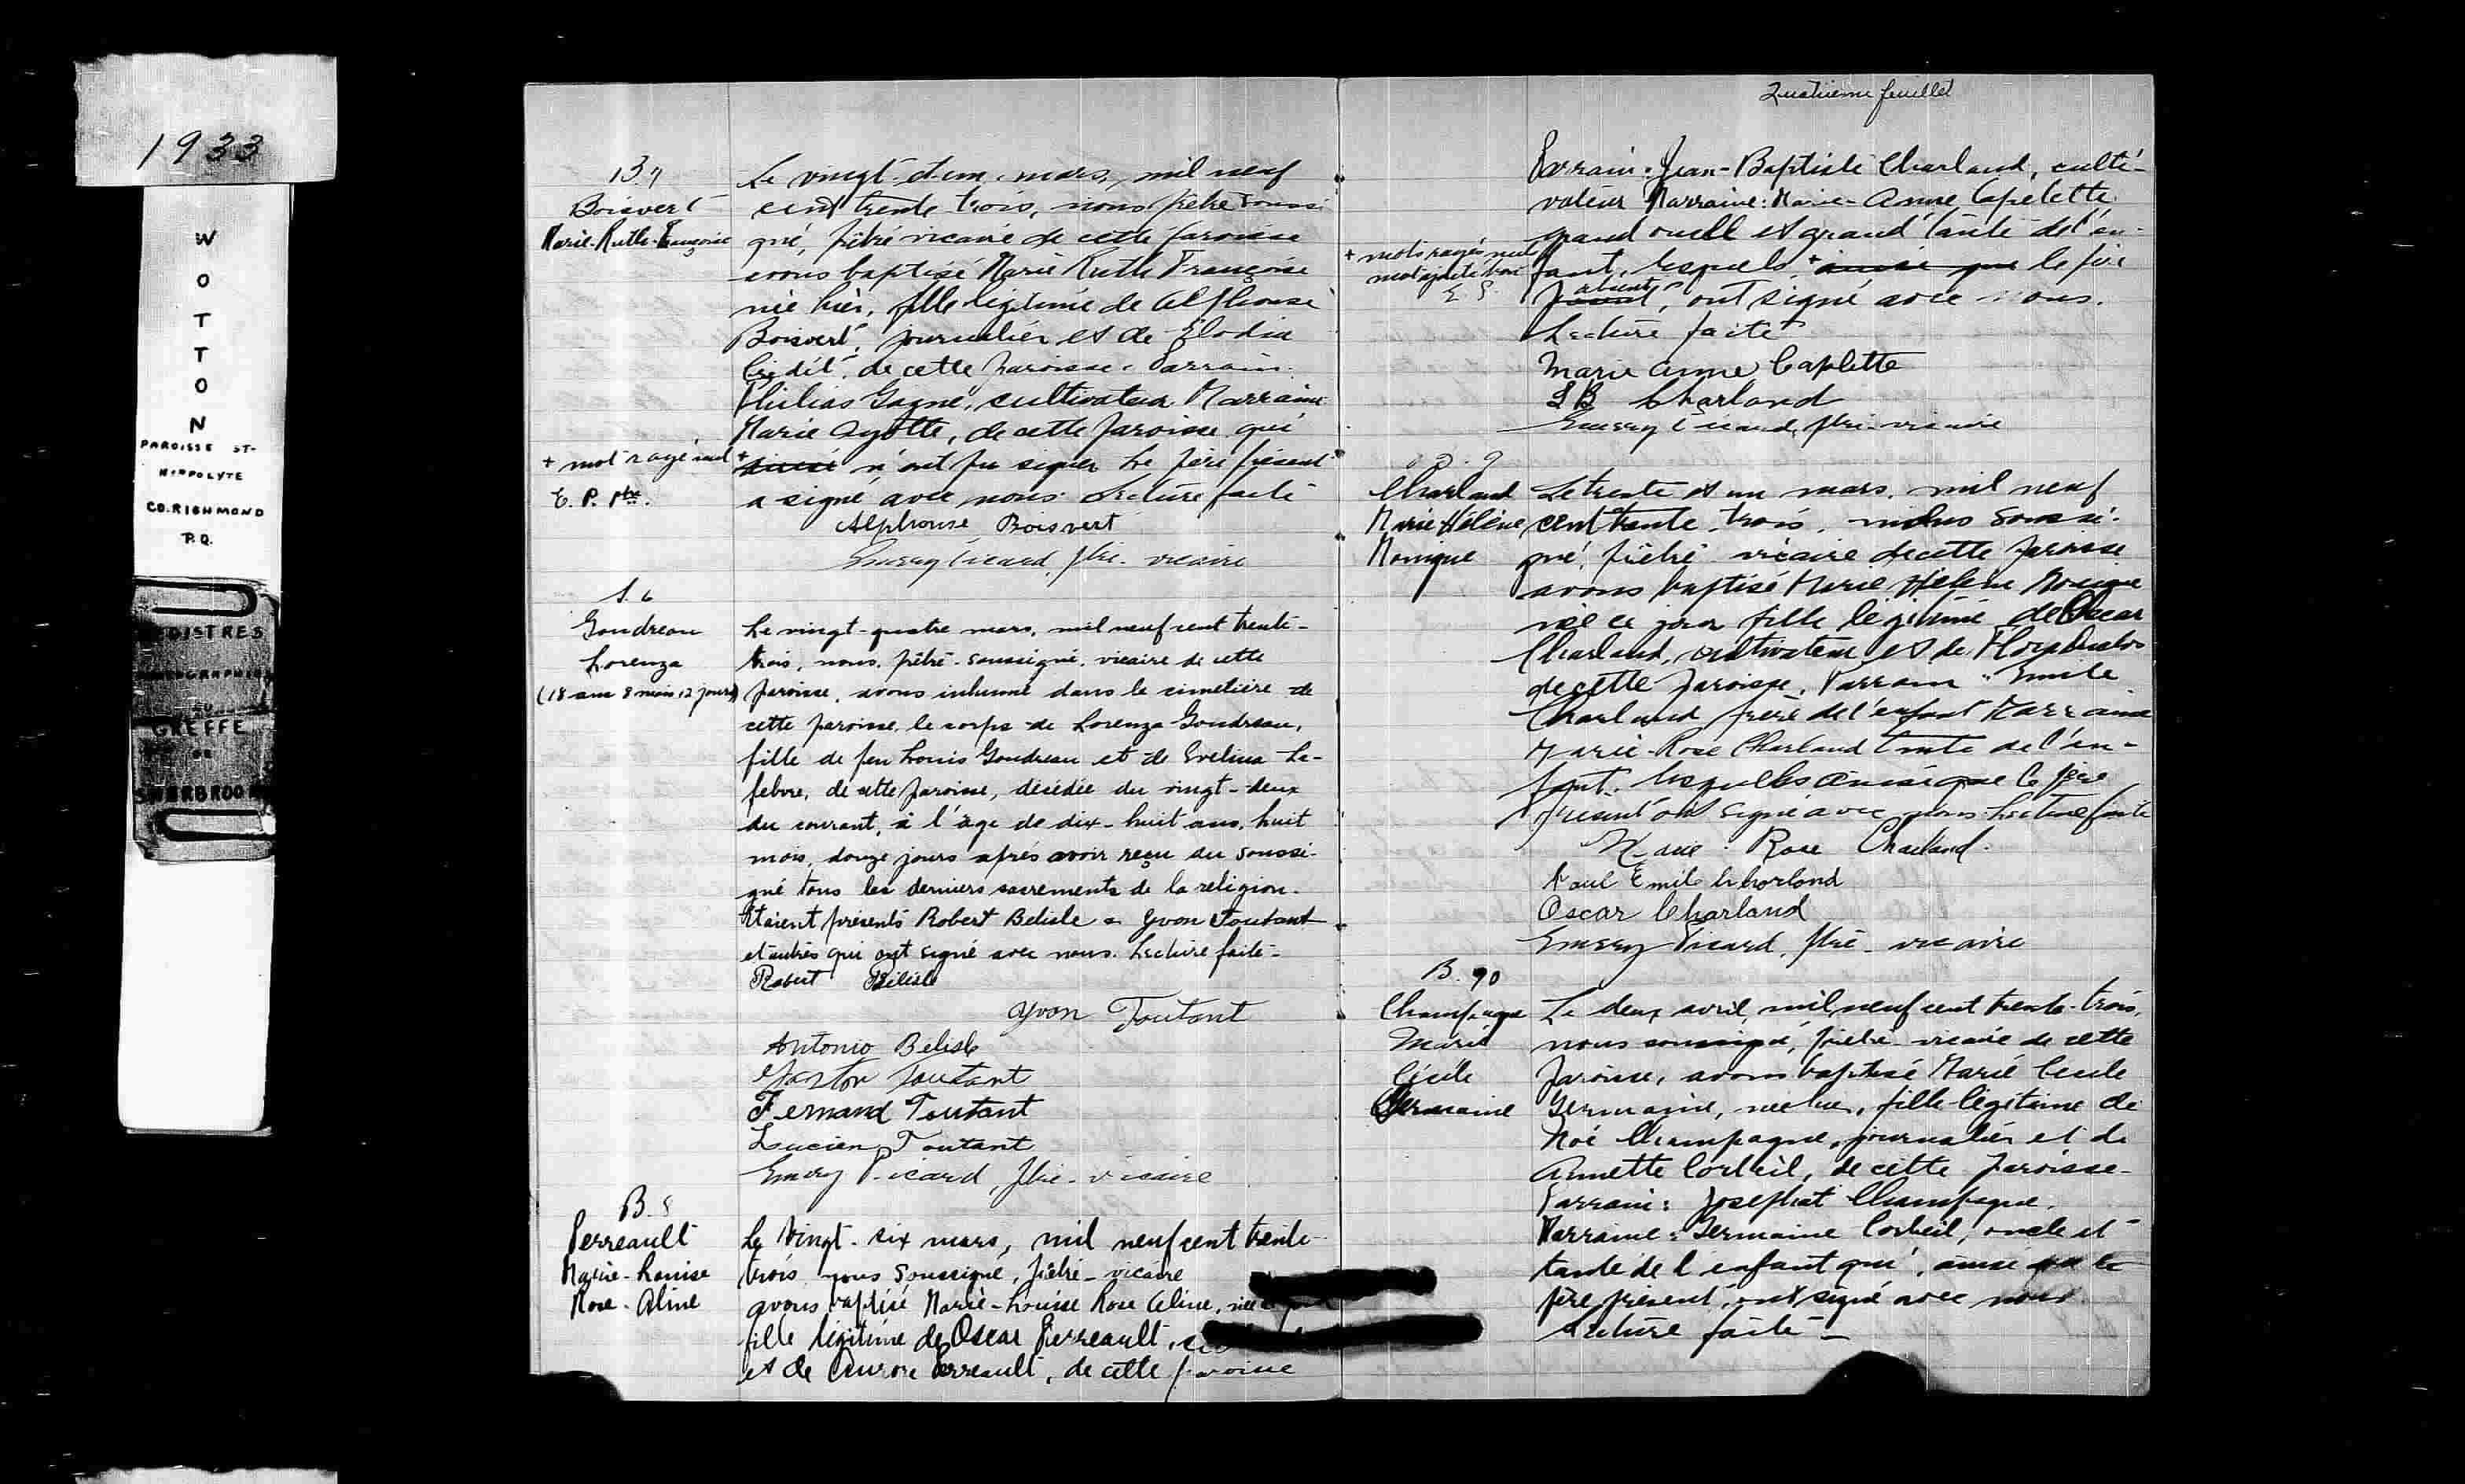 1933
W
O
T
T
O
N
PAROISSE ST-
HIPPOLYTE
CO. RICHMOND
P.Q.
REGISTRES
PHOTOGRAPHIES
AU
GREFFE
DE
SHERBROOKE
B.7
Boisvert
Marie-Ruth-Françoise
Le vingt-et-un mars, mil neuf
cent trente trois, nous prêtre soussi-
gné, prêtre vicaire de cette paroisse
avons baptisé Marie Ruth Françoise
née hier, fille légitime de Alphonse
Boisvert, journalier et de Elodia
de cette paroisse. Parrain:
Philias Gagné, cultivateur Marraine
Marie Ayotte, de cette paroisse qui
+ mot rayé nul
E. P. ptre.
+ ainsi n'ont pu signer Le père présent
a signé avec nous. Lecture faite
Alphonse Boisvert
Emery Picard, ptre. vicaire
S. 6
Goudreau
Lorenza
(18 ans 8 mois 12 jours)
Le vingt-quatre mars, mil neuf cent trente-
trois, nous, prêtre-soussigné, vicaire de cette
paroisse, avons inhumé dans le cimetière de
cette paroisse, le corps de Lorenza Goudreau,
fille de feu Louis Goudreau et de Evelina Le-
febvre, de cette paroisse, décédée du vingt-deux
du courant, à l'âge de dix-huit ans, huit
mois, douze jours après avoir reçu du soussi-
gné tous les derniers sacrements de la religion.
Etaient présents Robert Belisle & Yvon Toutant
et autres qui ont signé avec nous. Lecture faite-
Robert Bélisle
Yvon Toutant
Antonio Belisle
Gaston Toutant
Fernand Toutant
Lucien Toutant
Emery Picard, ptre-vicaire
B. 8
Perreault
Marie-Louise
Rose-Aline
Le vingt-six mars, mil neuf cent trente-
trois nous soussigné, prêtre-vicaire
avons baptisé Marie-Louise Rose Aline, née
fille légitime de Oscar Perreault,
et de Aurore Perreault, de cette paroisse
Quatrième feuillet
Parrain: Jean-Baptiste Charland, culti-
vateur Marraine: Marie-Anne Capelette
grand oncle et grand'tante de l'en-
+ mots rayés nuls
mot ajouté bon
E P.
fant, lesquels, + ainsi que le père
absent
présent, ont signé avec nous.
Lecture faite
Marie Anne Caplette
J B Charland
Emery Picard, ptre-vicaire
B. 9
Charland
Marie Hélène
Monique
Le trente et un mars, mil neuf
cent trente trois, nous soussi-
gné, prêtre vicaire de cette paroisse
avons baptisé Marie Hélène Monique
née ce jour fille légitime de Oscar
Charland, cultivateur et de
de cette paroisse. Parrain: Emile
Charland frère de l'enfant Marraine
Marie-Rose Charland tante de l'en-
fant, lesquels ainsi que le père
présent ont signé avec nous Lecture faite
Marie Rose Charland.
Paul Emile Charland
Oscar Charland
Emery Picard, ptre-vicaire
B. 10
Champagne
Marie
Cécile
Germaine
Le deux avril, mil neuf cent trente-trois,
nous soussigné, prêtre-vicaire de cette
paroisse, avons baptisé Marie Cecile
Germaine, née hier, fille légitime de
Noé Champagne, journalier et de
Annette Corbeil, de cette paroisse-
Parrain: Josephat Champagne.
Marraine: Germaine Corbeil, oncle et
tante de l'enfant qui, ainsi que le
père présent, ont signé avec nous
Lecture faite-